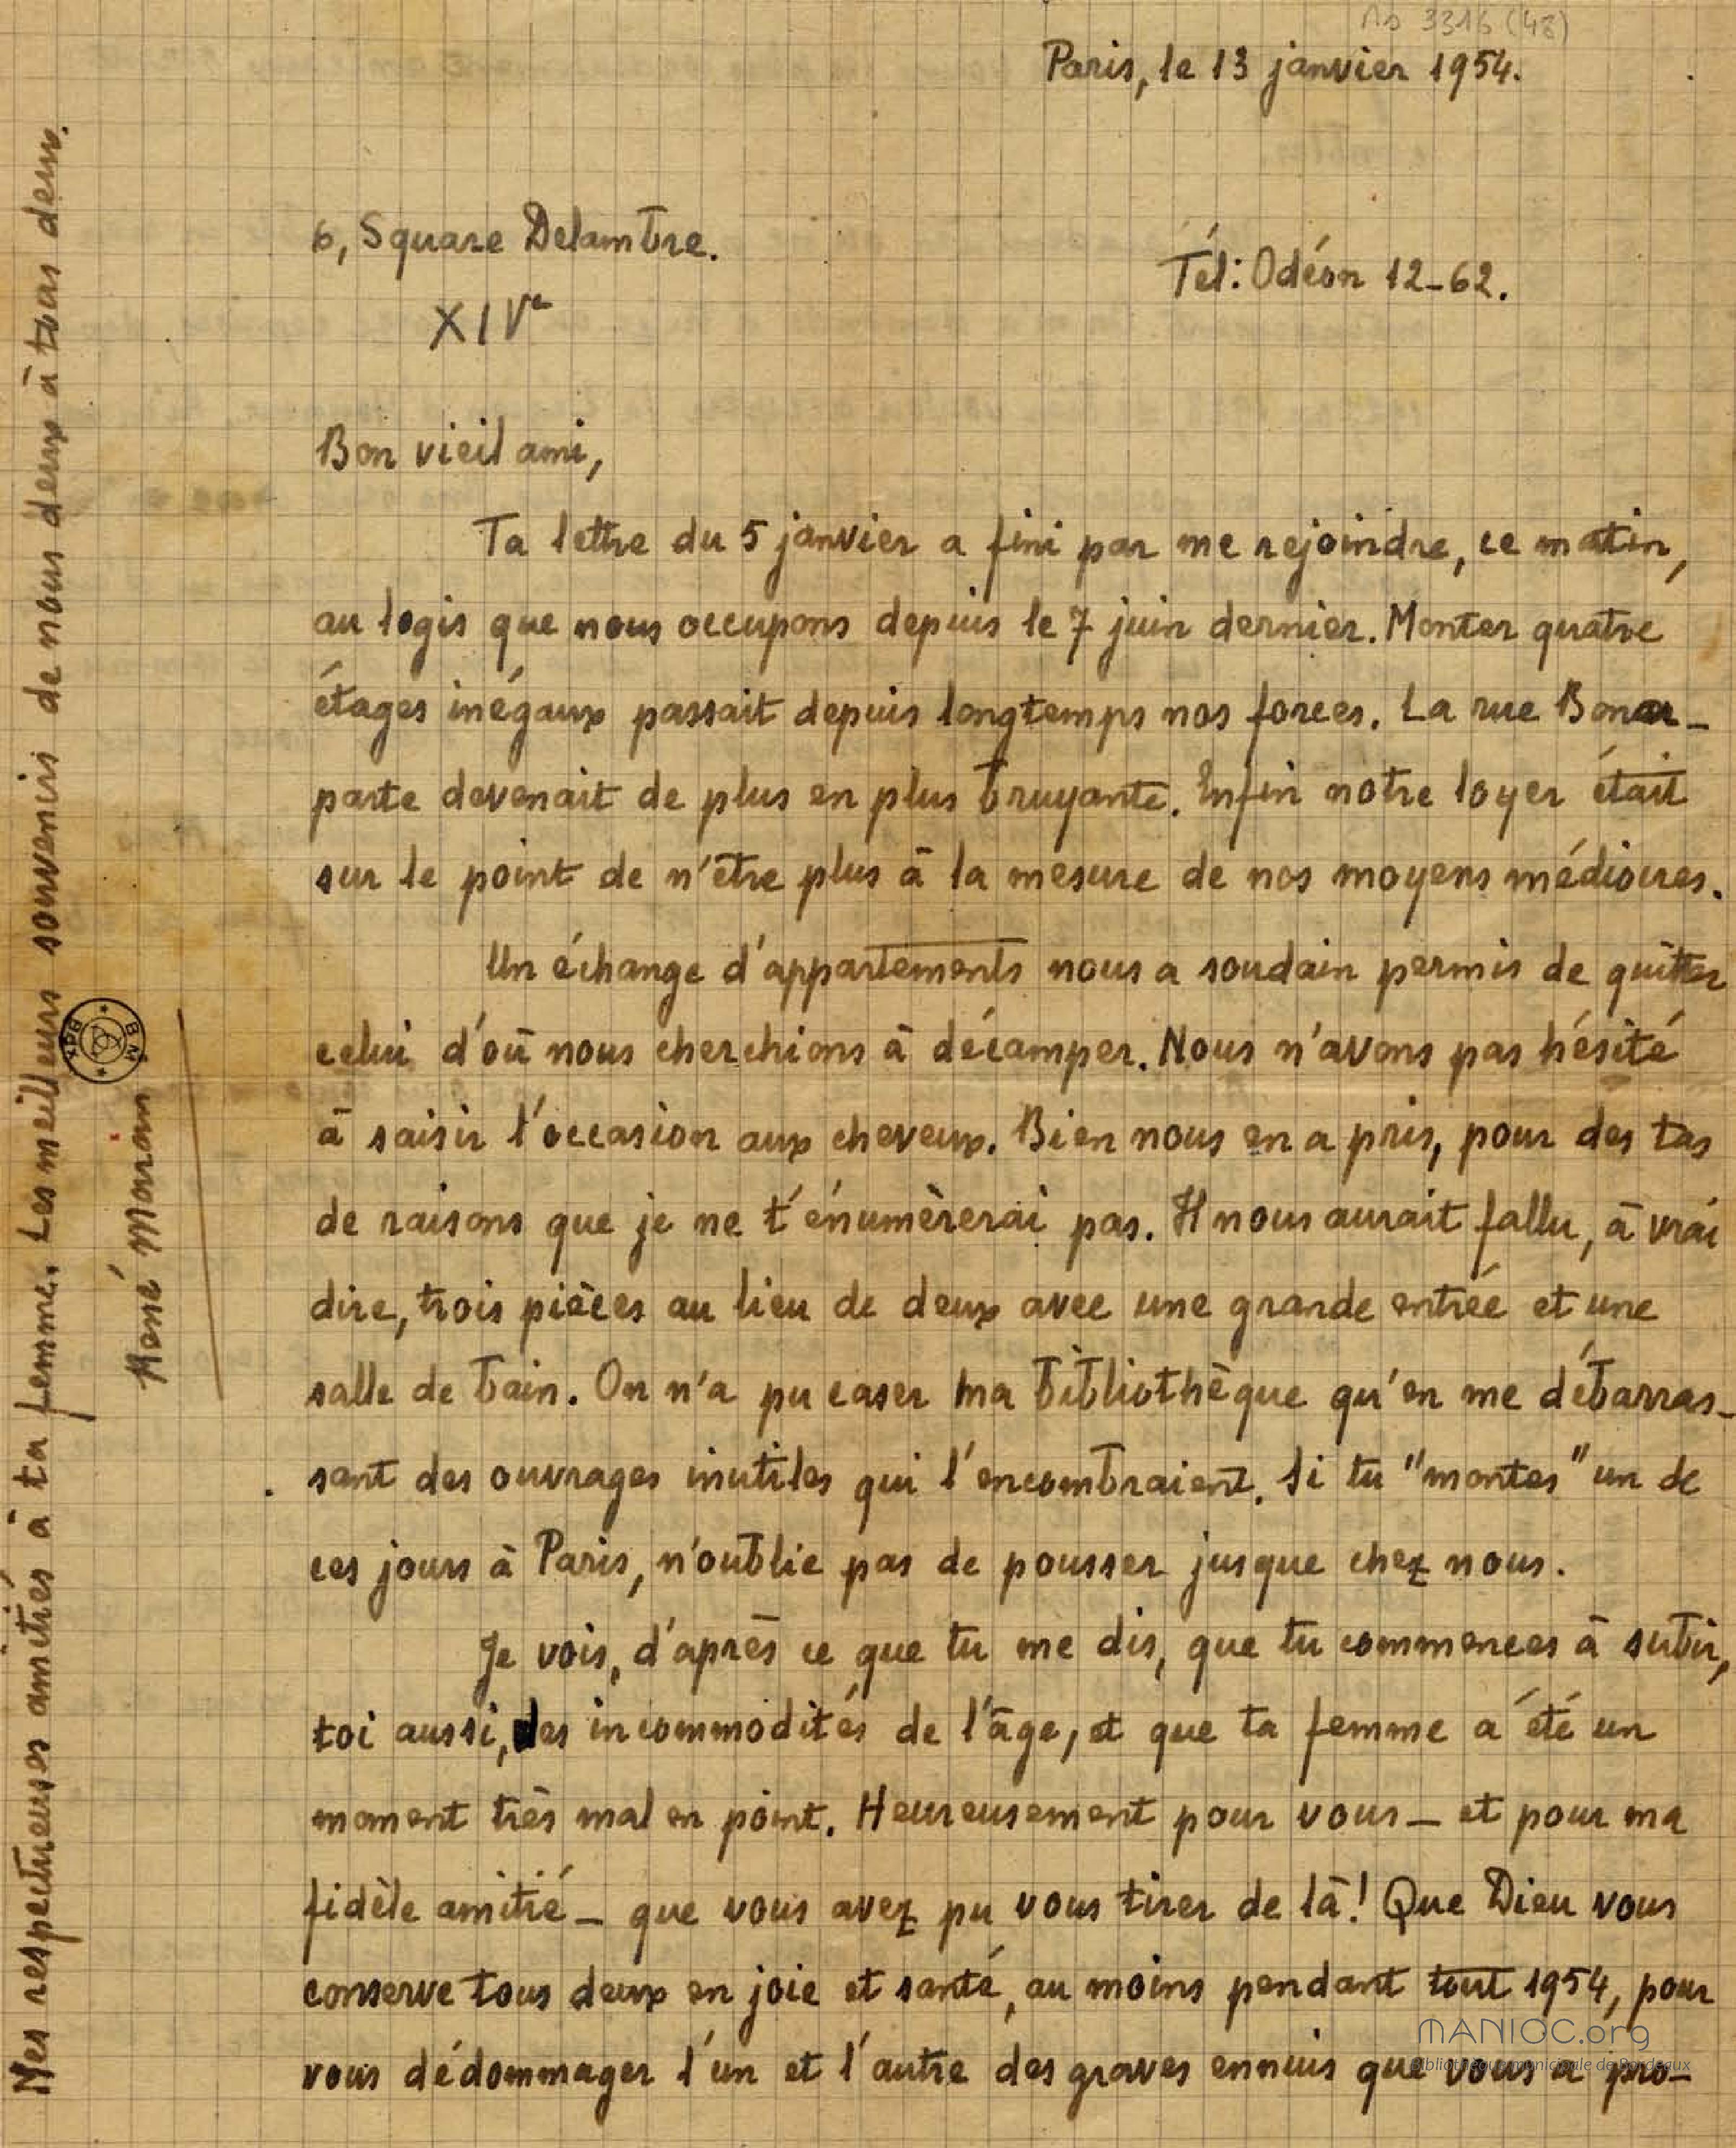 Ms 3316 (48)
Paris, le 13 janvier 1954.
6, Square Delambre.
Tél: Odéon 12-62.
XIVe
Bon vieil ami,
Ta lettre du 5 janvier a fini par me rejoindre, ce matin,
au logis que nous occupons depuis le 7 juin dernier. Monter quatre
étages inégaux passait depuis longtemps nos forces. La rue Bona-
parte devenait de plus en plus bruyante. Enfin notre loyer était
sur le point de n'être plus à la mesure de nos moyens médiocres.
Un échange d'appartements nous a soudain permis de quitter
celui d'où nous cherchions à décamper. Nous n'avons pas hésité
à saisir l'occasion aux cheveux. Bien nous en a pris, pour des tas
de raisons que je ne t'énumèrerai pas. Il nous aurait fallu, à vrai
dire, trois pièces au lieu de deux avec une grande entrée et une
salle de bain. On n'a pu caser ma bibliothèque qu'en me débarras-
sant des ouvrages inutiles qui l'encombraient. Si tu "montes" un de
ces jours à Paris, n'oublie pas de pousser jusque chez nous.
Je vois, d'après ce que tu me dis, que tu commences à subir,
toi aussi, les incommodités de l'âge, et que ta femme a été un
moment très mal en point. Heureusement pour vous — et pour ma
fidèle amitié — que vous avez pu vous tirer de là! Que Dieu vous
conserve tous deux en joie et santé, au moins pendant tout 1954, pour
vous dédommager l'un et l'autre des graves ennuis que vous a pro-
Mes respectueuses amitiés à ta femme. Les meilleurs souvenirs de nous deux à tous deux.
René Maran
B M Bdx
MANIOC.org
Bibliothèque municipale de Bordeaux